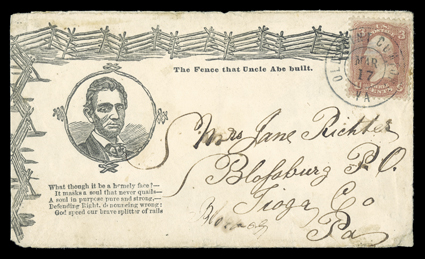 The Fence that Uncle Abe built.
MAR
17
VA.
What though it be a homely face?—
It masks a soul that never quails—
A soul in purpose pure and strong,—
Defending Right, denouncing wrong:
God speed our brave splitter of rails
Mrs Jane Richter
Blossburg P.O.
Tioga Co
Pa